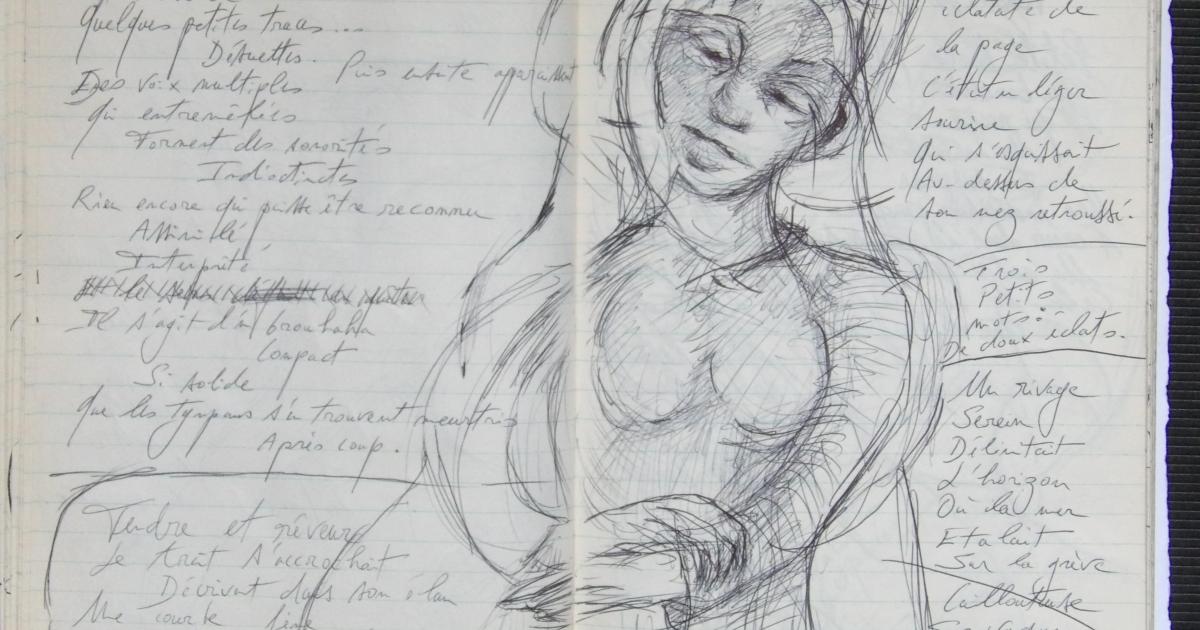 Quelques petites traces...
Désuettes.
Puis ensuite apparaissent
Des voix multiples
Qui entremêlées
Forment des sonorités
Indistinctes
Rien encore qui puisse être reconnu
Assimilé
Interprété
Il s'agit d'un brouhaha
Compact
Si solide
Que les tympans s'en trouvent meurtris
Après coup.
Tendre et rêveur
Le trait s'accrochait
Décrivant dans son élan
Une courte ligne
éclatate de
la page
C'était un léger
sourire
qui s'esquissait
Au-dessus de
son nez retroussé.
Trois
Petits
mots :
De doux éclats.
Un rivage
Serein
Délimitait
L'horizon
Où la mer
Etalait
Sur la grève
Caillouteuse